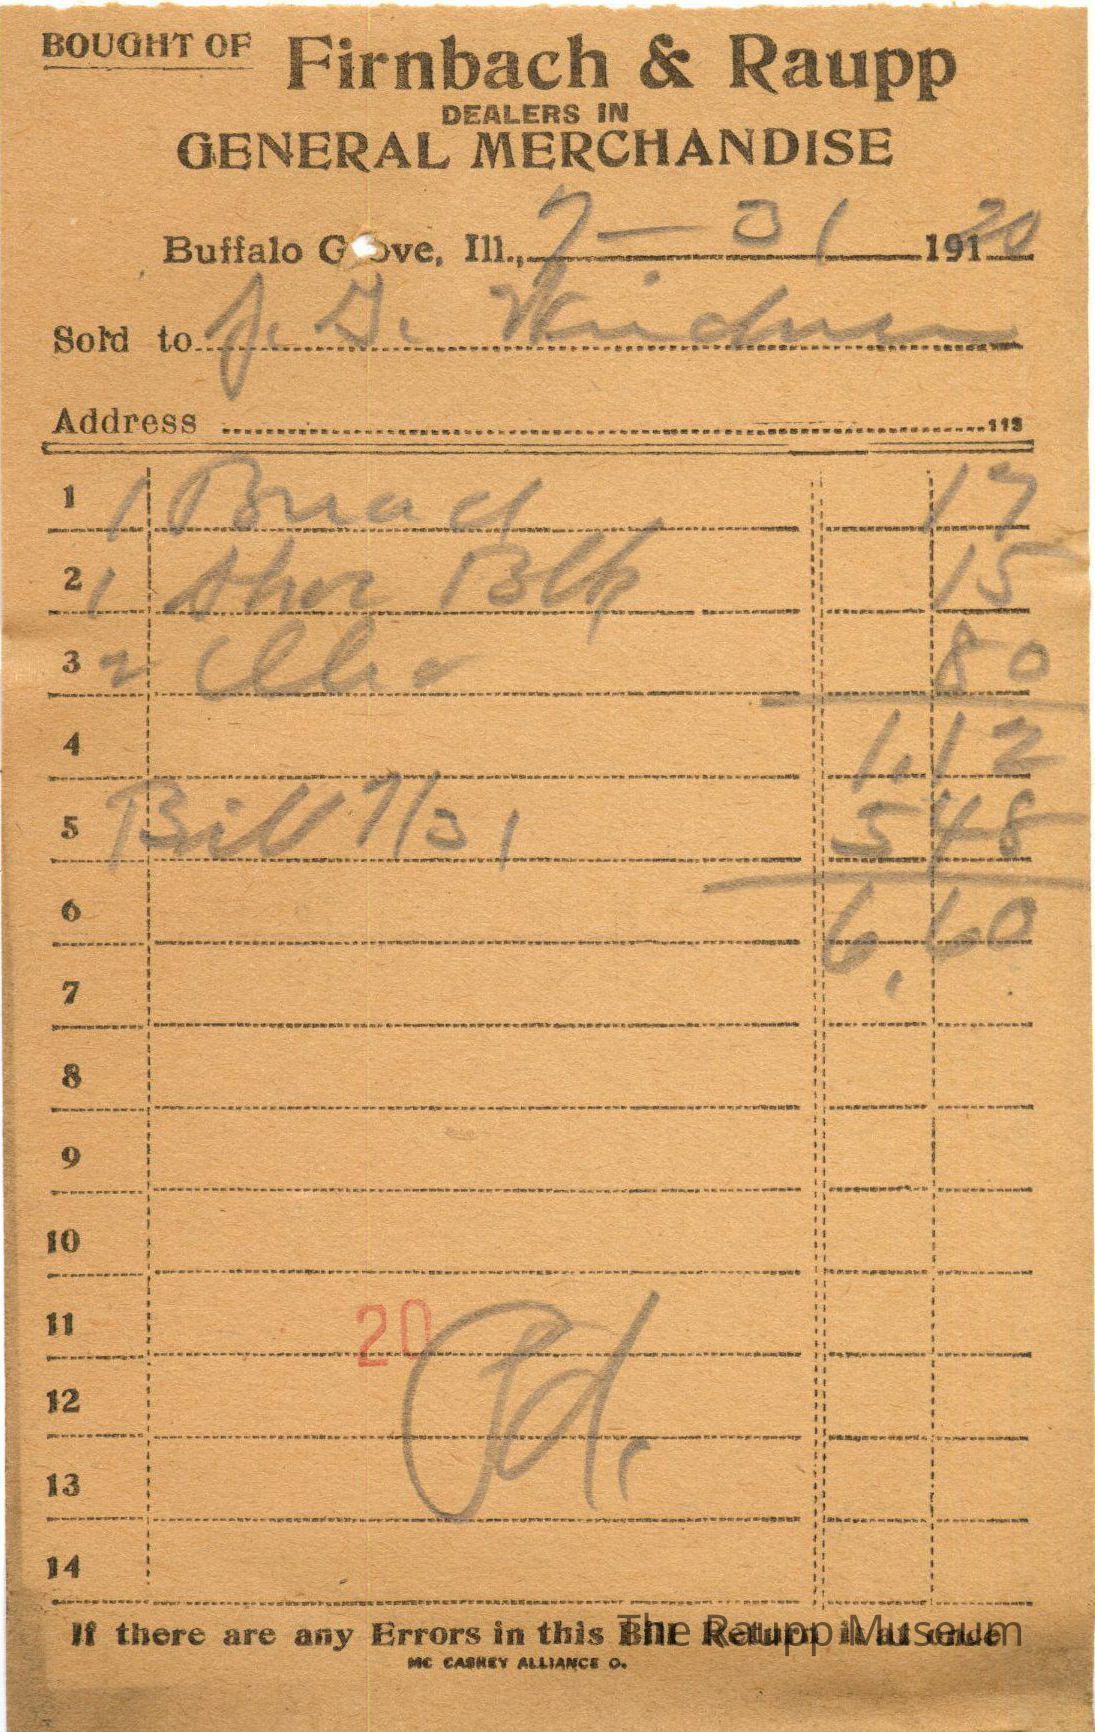 BOUGHT OF Firnbach & Raupp
DEALERS IN
GENERAL MERCHANDISE
Buffalo Grove, Ill., 7 — 31 191 20
Sold to J. G.
Address 113
1 1 Bread 17
2 1 Shoe Blk 15
3 2 80
4 1.12
5 Bill 7/31 5 48
6 6.60
7
8
9
10
11 20
12 Pd.
13
14
If there are any Errors in this Bill Return it at once
The Raupp Museum
MC CASKEY ALLIANCE O.